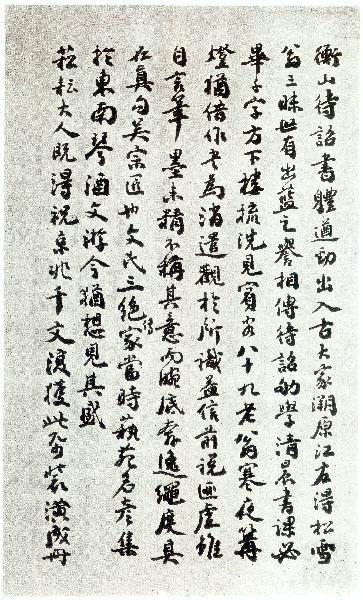 衡山待詔書體遒勁出入古大家溯原江左得松雪
翁三昧世有出藍之譽相傳待詔勤學清晨書課必
畢千字方下樓梳洗見賓客八十九老翁寒夜篝
燈猶借作書為消遣觀於所識益信前說匪虛雖
自言筆墨未精不稱其意而晼底奔逸繩度具
在真勾吳宗匠也文氏三絕傳家當時蓺苑名彥集
於東南琴酒文游今猶想見其盛
菘耘大人既得祝京兆千文復獲此卷裝潢成冊